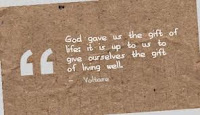 God gave us the gift of
life; it is up to us to
give ourselves the gift
of living well.
- Voltaire